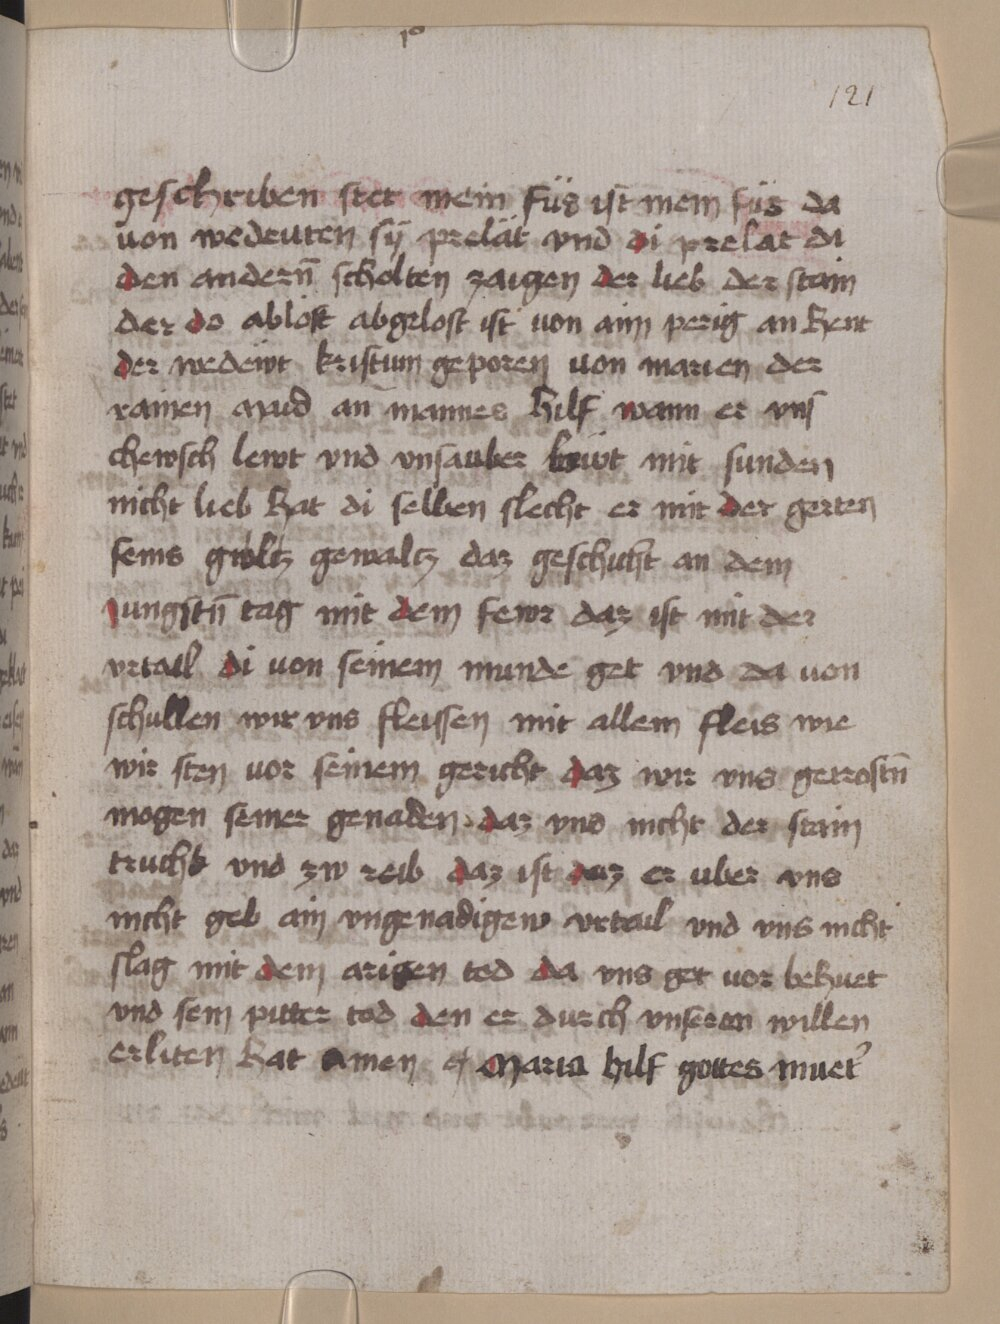 121
geschriben stet mein füs ist mein füs da
von wedeuten sÿ prelät vnd di prelat di
den andern̄ scholten zaigen der lieb der stain
der do ablost abgelost ist von aim perig an hent
der wedewt kristum geporen von marien der
rainen mud an mannes hilf wann er vns
chewsch lewt vnd vnsauber lewt mit sunden
nicht lieb hat di selben slecht er mit der gerten
seins gewaltz daz geschicht an dem
jungstn̄ tag mit dem fewr daz ist mit der
vrtail di von seinem munde get vnd da von
schullen wir vns fleissen mit allem fleis wie
wir sten vor seinem gericht daz wir vns getrostn̄
mogen seiner genaden daz vnd nicht der stain
truckt vnd zw reib daz ist daz er uber vns
nicht geb ain vngenadigew vrtail vnd vns nicht
slag mit dem arigen tod da vns get vor behuet
vnd sein pitter tod den er durch vnseren willen
erliten hat Amen Maria hilf gottes muet̓